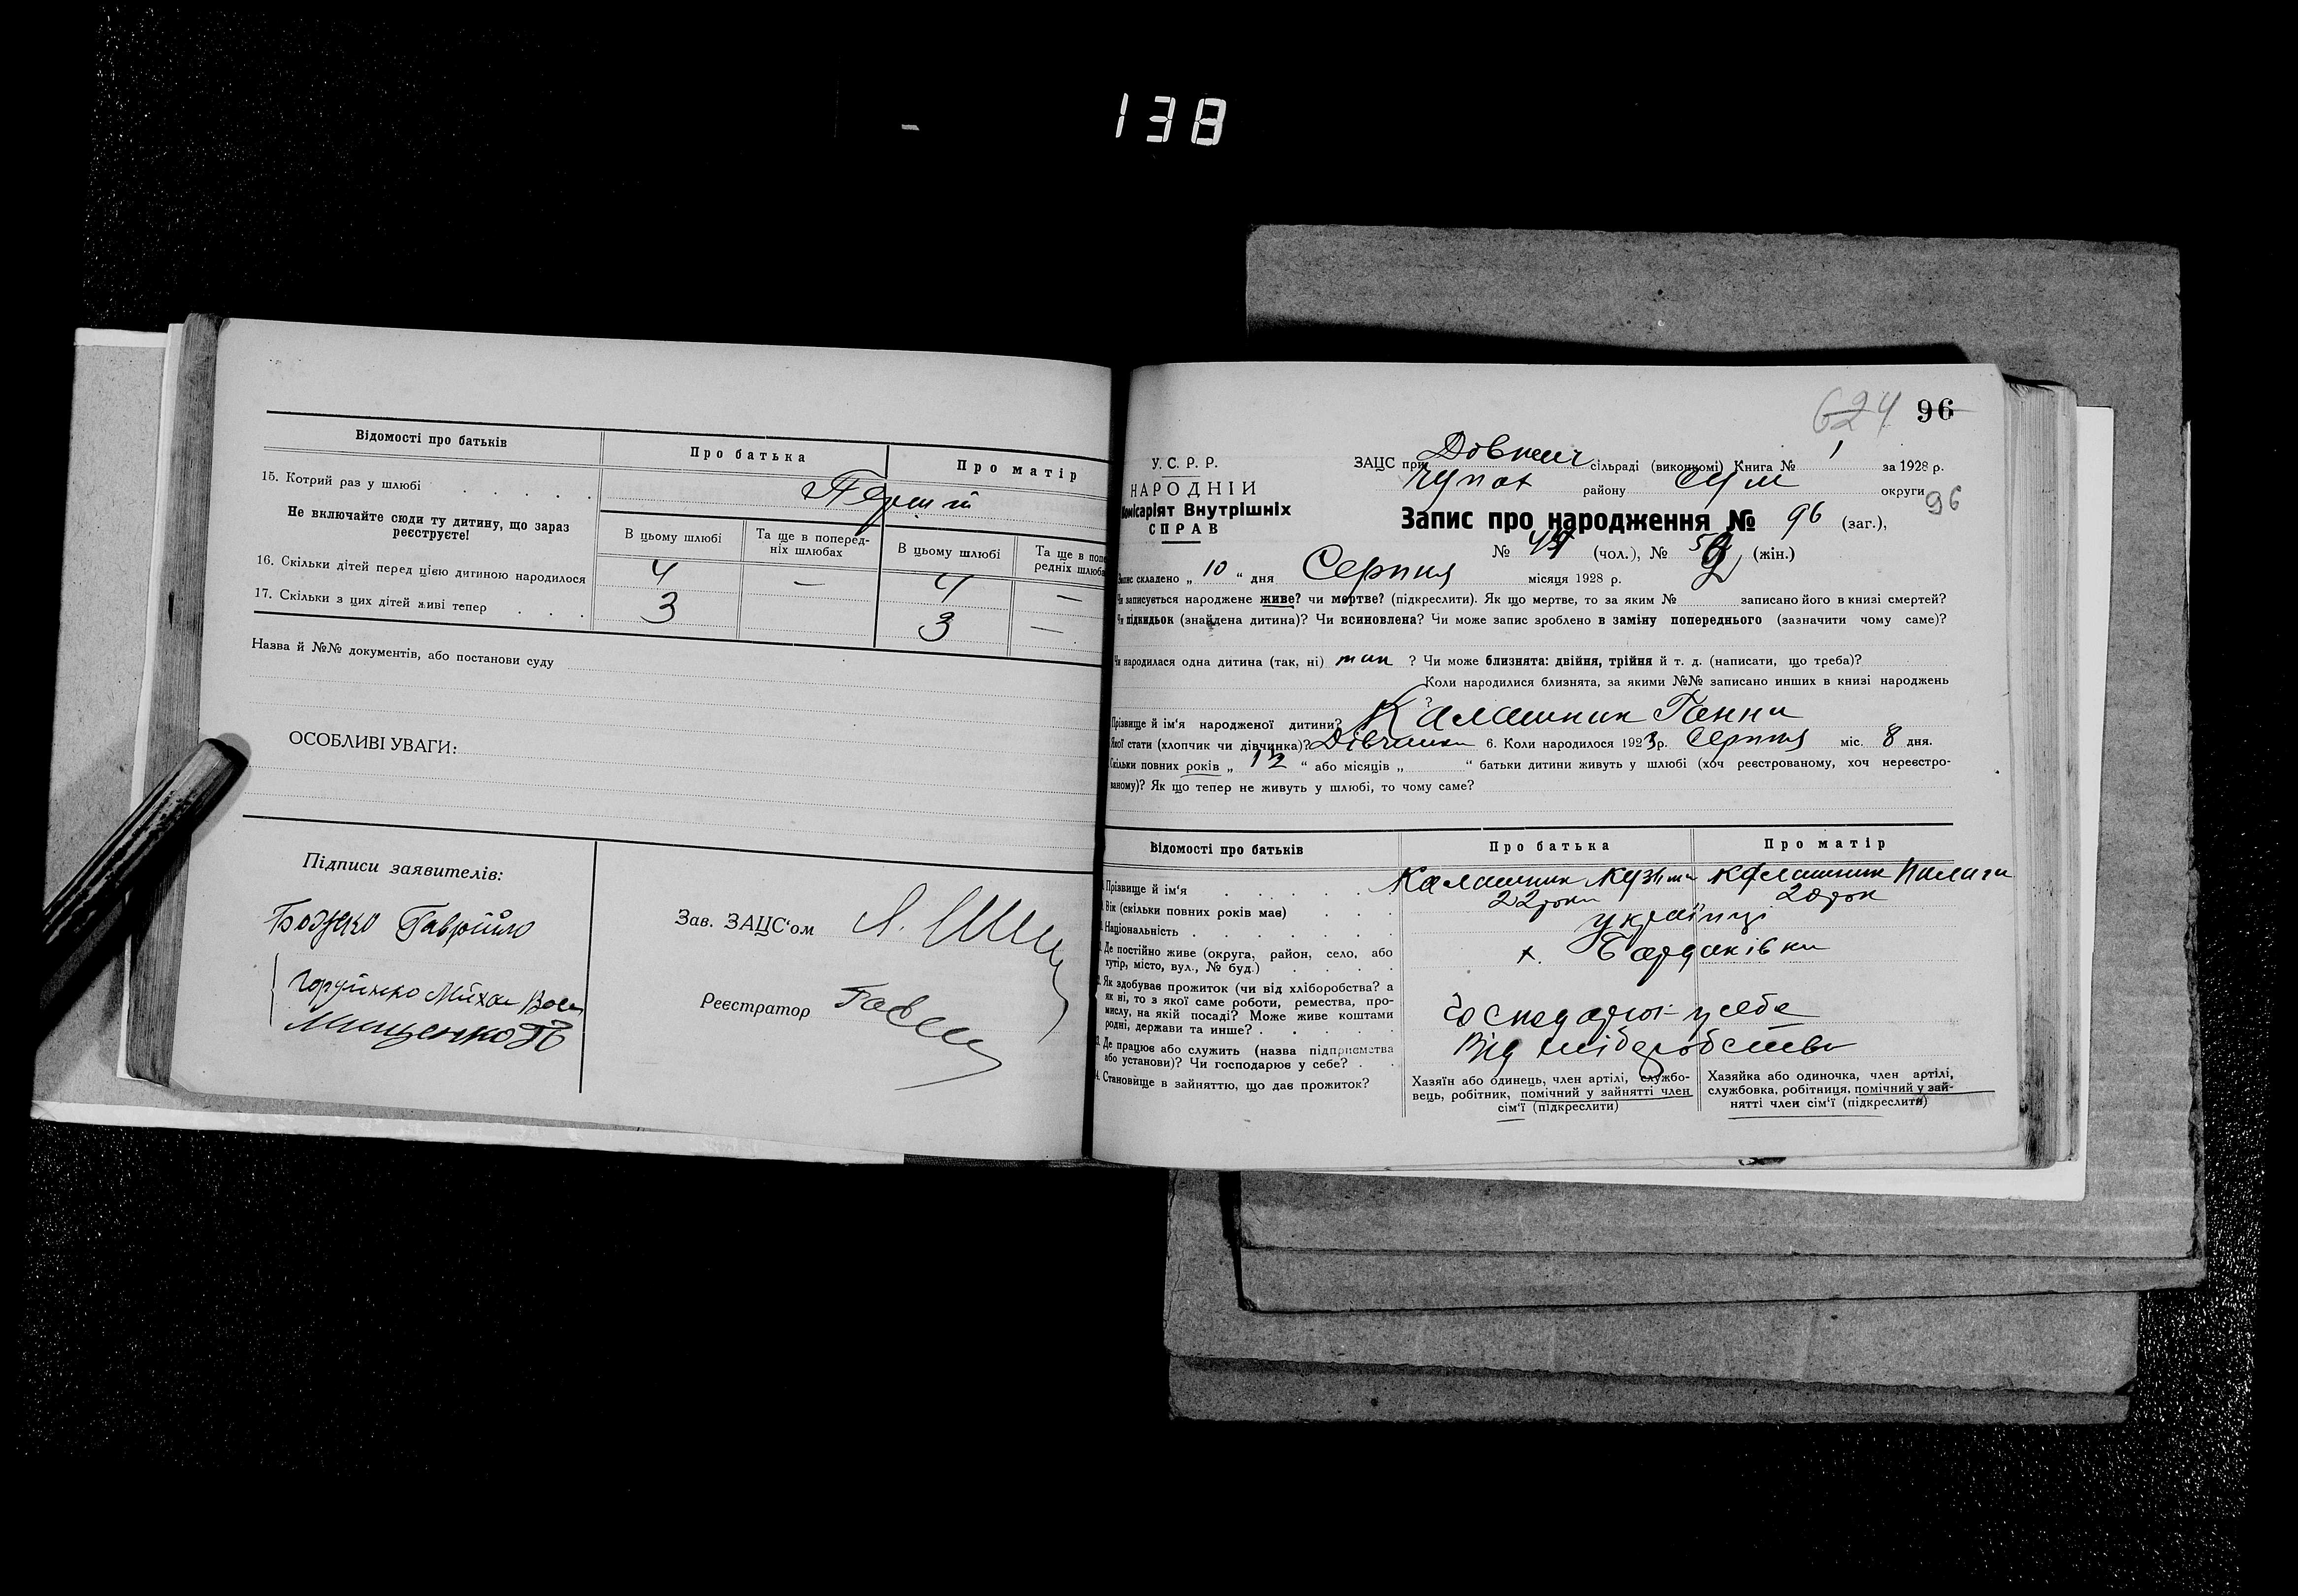 138
Відомості про батьків
Про батька
Про матір
15. Котрий раз у шлюбі
Перший
Не включайте сюди ту дитину, що зараз
реєструєте!
В цьому шлюбі
Та ще в поперед-
ніх шлюбах
В цьому шлюбі
Та ще в попе
редніх шлюба
16. Скільки дітей перед цією дитиною народилося
4 — 4 —
17. Скільки з цих дітей живі тепер
3 3 —
Назва й №№ документів, або постанови суду
ОСОБЛИВІ УВАГИ:
Підписи заявителів:
Божко Гаврійло
Мищенко
Зав. ЗАЦС'ом
Реєстратор
624 96
У. С. Р. Р.
НАРОДНІЙ
омісаріят Внутрішніх
СПРАВ
ЗАЦС при сільраді (виконкомі) Книга № 1 за 1928 р.
Чупах району Сум округи
96
Запис про народження № 96 (заг.),
№ (чол.), № (жін.)
Запис складено „ 10 “ дня Серпня місяця 1928 р.
Чи записується народжене живе? чи мертве? (підкреслити). Як що мертве, то за яким № записано його в книзі смертей?
Чи підкидьок (знайдена дитина)? Чи всиновлена? Чи може запис зроблено в заміну попереднього (зазначити чому саме)?
Чи народилася одна дитина (так, ні) так ? Чи може близнята: двійня, трійня й т. д. (написати, що треба)?
Коли народилися близнята, за якими №№ записано инших в книзі народжень
?
Прізвище й ім'я народженої дитини? Калашник Ганна
Якої стати (хлопчик чи дівчинка)? Дівчинка 6. Коли народилося 1923 р. Серпня міс. 8 дня.
Скільки повних років „ 1½ “ або місяців „ “ батьки дитини живуть у шлюбі (хоч реєстрованому, хоч нереєстро-
ваному)? Як що тепер не живуть у шлюбі, то чому саме?
Відомості про батьків
Про батька
Про матір
Прізвище й ім'я
Калашник Кузьма Калашник
Вік (скільки повних років має)
22 роки 20 рок
Національність
українці
Де постійно живе (округа, район, село, або
хутір, місто, вул., № буд.)
х. Бардаківка
Як здобуває прожиток (чи від хліборобства? а
як ні, то з якої саме роботи, ремества, про-
мислу, на якій посаді? Може живе коштами
родні, держави та инше?
Господарює у себе
Де працює або служить (назва підприємства
або установи)? Чи господарює у себе?
Від хліборобства
Становище в зайняттю, що дає прожиток?
Хазяїн або одинець, член артілі, службо-
вець, робітник, помічний у зайнятті член
сім'ї (підкреслити)
Хазяйка або одиночка, член артілі,
службовка, робітниця, помічний у зай-
нятті член сім'ї (підкреслити)